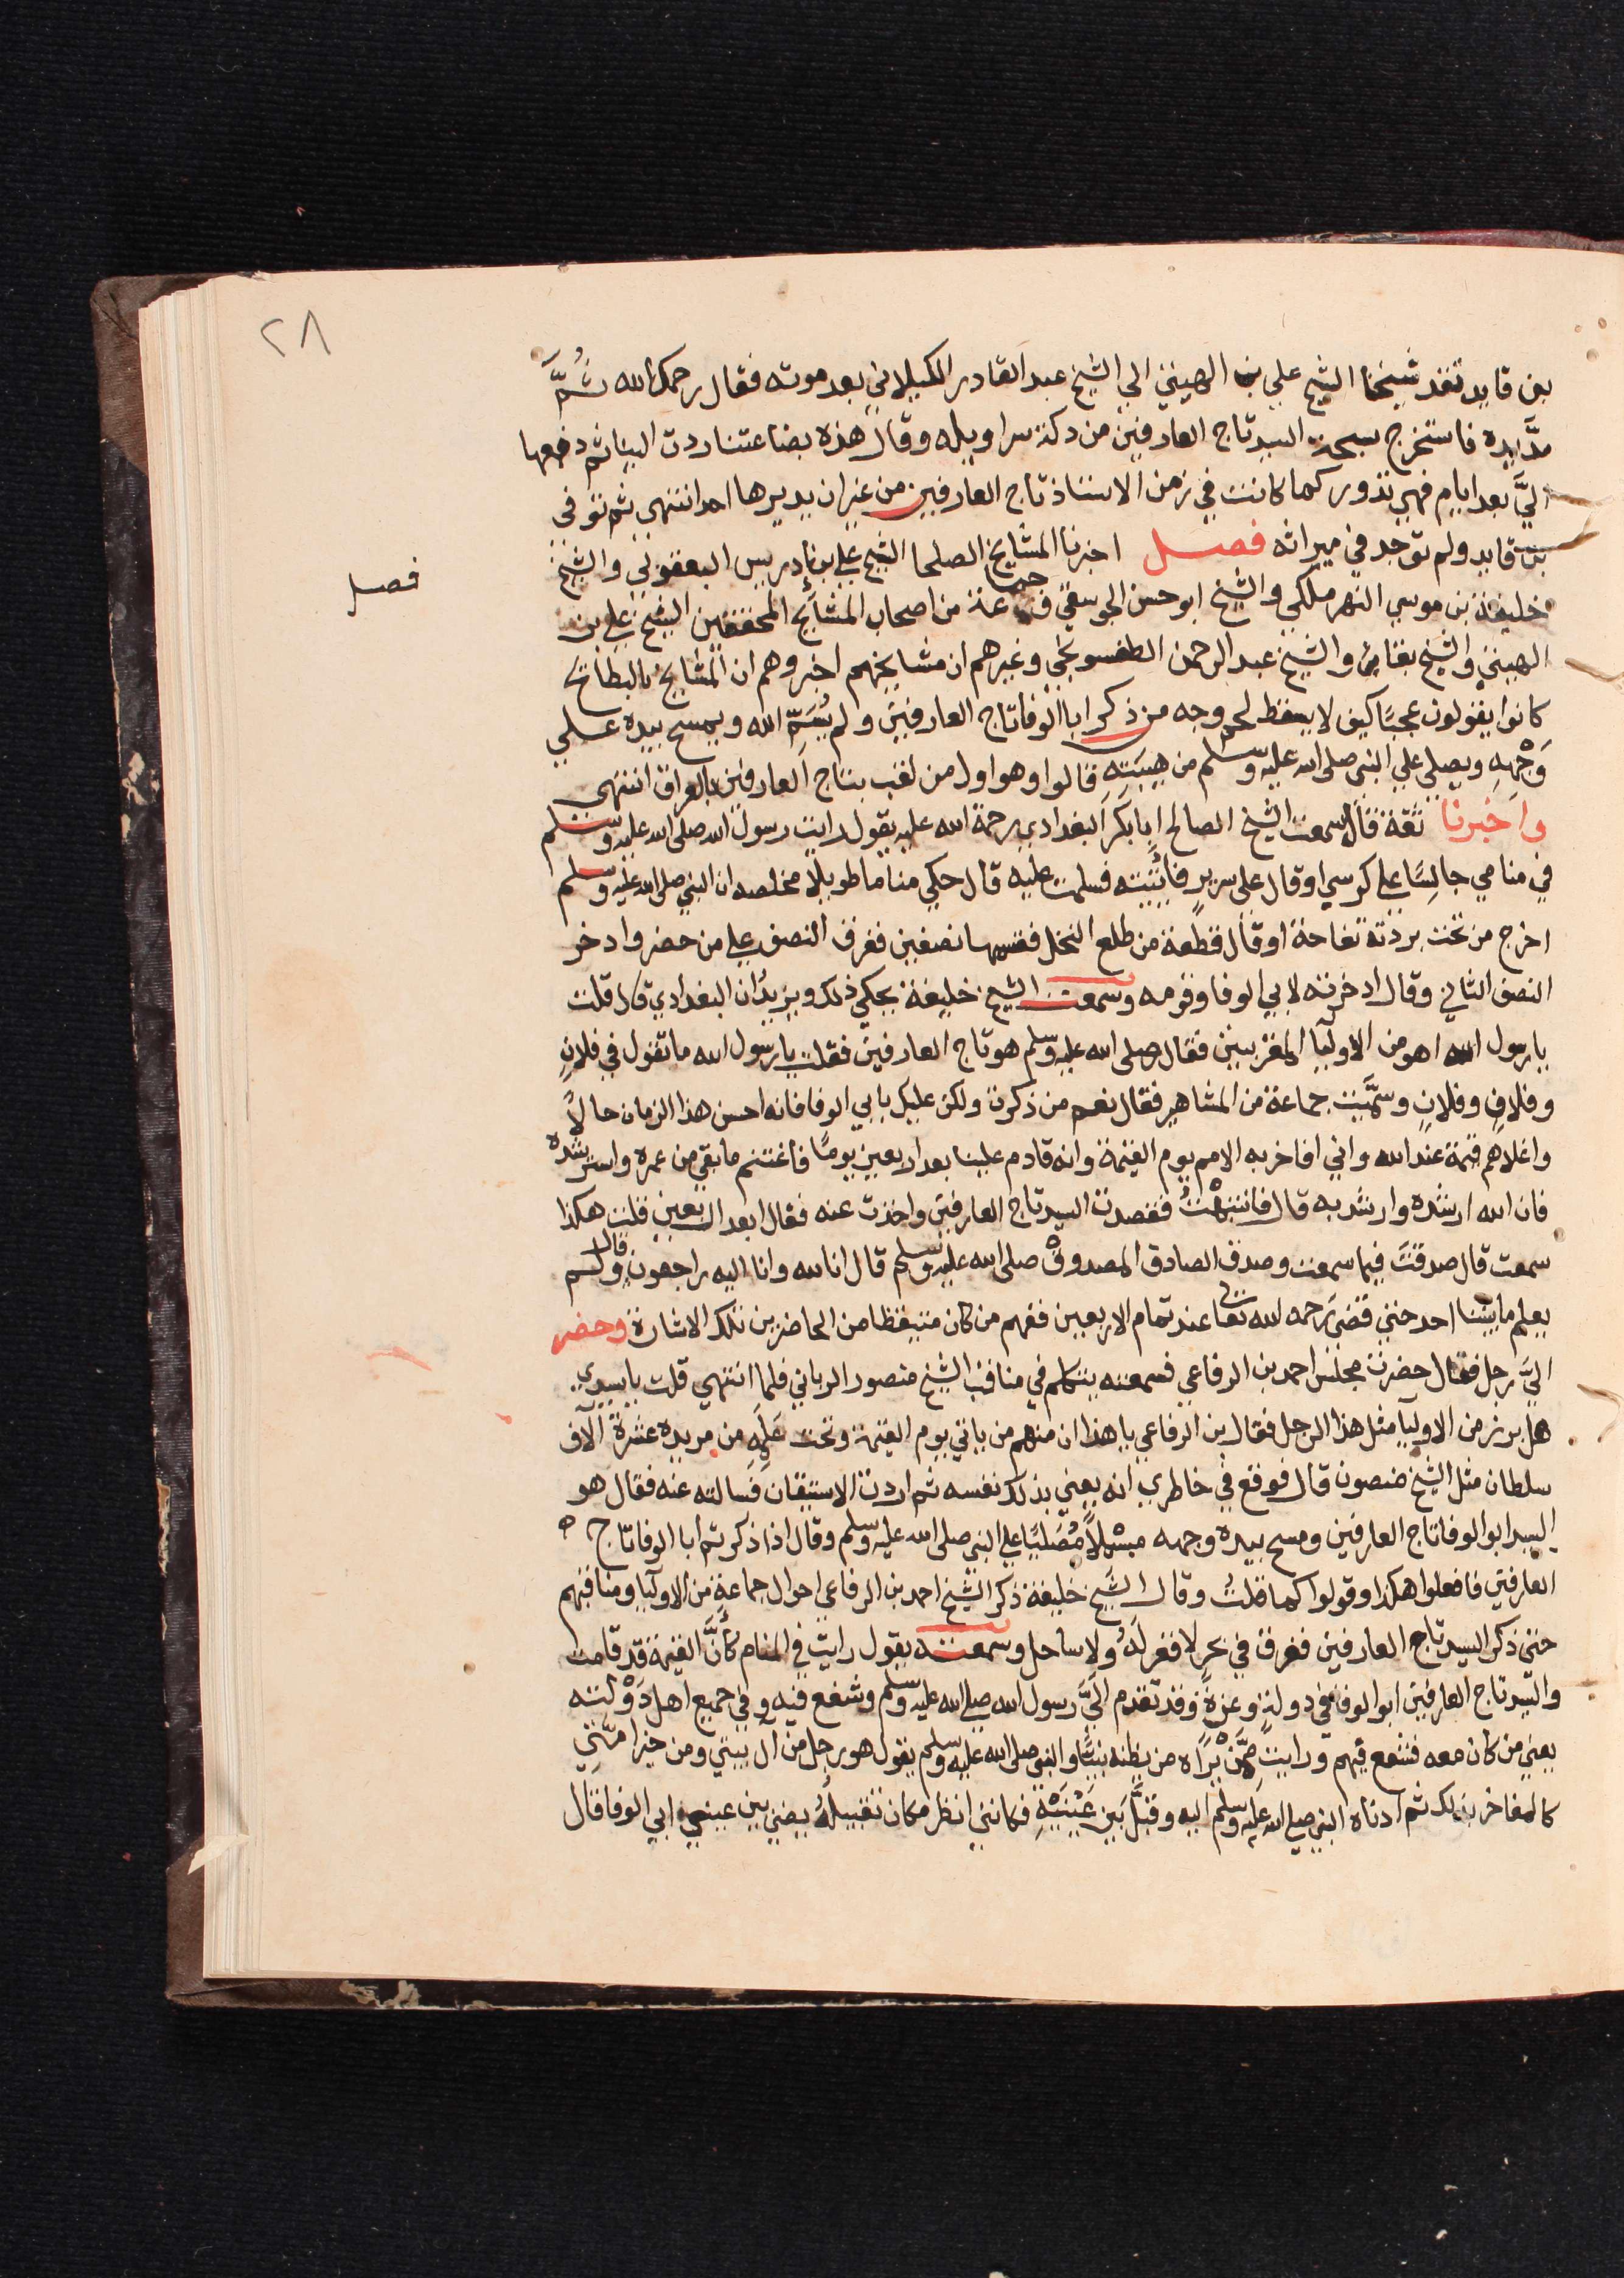 ٢٨
بن قايد تقد شيخنا الشيخ علي بن الهيتي الي الشيخ عبد القادر الكيلاني بعد موته فقال رحمك الله ثُمَّ
مدَّ يده فاستخرج سبحة السيد تاج العارفين من دكة سراويله وقال هذه بضاعتنا ردت الينا ثم دفعها
اليَّ بعد ايام فهي تدور كما كانت في زمن الاستاذ تاج العارفين من غير ان يديرها احد انتهي ثم توفي
بن قايد ولم توجد في ميراثه فصل اخبرنا المشايخ الصلحا الشيخ علي بن إدريس اليعقوبي والشيخ
فصل
خليفة بن موسي النهرملكي والشيخ ابو حسن الجوسقي في جماعة من اصحاب المشايخ المحققين الشيخ علي بن
الهيتي والشيخ بقا والشيخ عبد الرحمن الطفسونجي وغيرهم ان مشايخهم اخبروهم ان المشايخ بالبطايح
كانوا يقولون عجبًا كيف لا يسقط لحم وجه من ذكر ابا الوفا تاج العارفين ولم يُسَمِّ الله ويمسح بيده علي
وَجْهِهِ ويصلي علي النبي صلى الله عليه وسلم من هيبَتِهِ قالوا وهو اول من لقب بتاج العارفين بالعراق انتهي
واخبرنا ثقة قال سمعت الشيخ الصالح ابا بكر البغدادي رحمة الله عليه يقول رايت رسول الله صلى الله عليه وسلم
في منامي جالسًا علي كرسي او قال على سرير فاتيته فسلمت عليه قال حكي مناما طويلا مخلصه ان النبي صلى الله عليه وسلم
اخرج من تحت بردته تفاحة او قال قطعة من طلع النخل فقسمها نصفين ففرق النصف علي من حضر وادخر
النصف الثاني وقال ادخرته لابي الوفا وقومه وسمعت الشيخ خليفة يحكي ذلك ويزيدُ ان البغدادي قال قلت
يا رسول الله اهو من الاوليا المقربين فقال صلى الله عليه وسلم هو تاج العارفين فقلت يا رسول الله ما تقول في فلانٍ
وفلانٍ وفلانٍ وسمَّيت جماعة من المشاهير فقال نعم من ذكرت ولكن عليك بابي الوفا فانه احسن هذا الزمان حالاً
واغلاهم قيمة عند الله واني افاخر به الامم يوم القيمة وانه قادم علينا بعد اربعين يومًا فاغتنم ما بقي من عمره واسترشده
فان الله ارشده وارشد به قال فانتبهْتُ فقصدت السيد تاج العارفين واخذت عنه فقال ابعد اربعين قلت هكذا
سمعت قال صدقتَ فيما سمعت وصدق الصادق المصدوقْ صلى الله عليه وسلم قال انا لله وانا اليه راجعون قال ولم
يعلم ما بيننا احد حتي قضي رحمه الله تعا عند تمام الاربعين ففهم من كان متيقظا من الحاضرين تلك الاشارة وحضر
اليَّ رجل فقال حضرت مجلس احمد بن الرفاعي فسمعته يتكلم في مناقب الشيخ منصور الرباني فلما انتهي قلت يا سيدي
هل برز من الاوليا مثل هذا الرجل فقال بن الرفاعي يا هذا ان منهم من ياتي يوم القيمة وتحت عَلَمِهِ من مريده عشرة الاف
سلطان مثل الشيخ منصور قال فوقع في خاطري انه يعني بذلك نفسه ثم اردت الاستيقان فسالته عنه فقال هو
السيد ابو الوفا تاج العارفين ومسح بيده وجهه مبسملًا مُصَليًا علي النبي صلى الله عليه وسلم وقال اذا ذكرتم ابا الوفا تاج
العارفين فافعلوا هكذا وقولوا كما قلتُ وقال الشيخ خليفة ذكر الشيخ احمد بن الرفاعي احوال جماعةٍ من الاوليا ومناقبهم
حتي ذكر السيد تاج العارفين فغرق في بحرٍ لا قعر لَهُ ولا ساحل وسمعته يقول رايت في المنام كأنَّ القيمة قد قامت
والسيد تاج العارفين ابو الوفا في دولةٍ وعزةٍ وقد تقدم اليَّ رسول الله صلي الله عليه وسلم وشفع فيه وفي جميع اهل دَوْلته
يعني من كان معه فشفع فيهم ورايت مَنْ يَرَاه من يظنه نبيًّا والنبي صلى الله عليه وسلم يقول هو رجل من آل بيتي ومن خير امتي
كالمفاخر بذلك ثم ادناه النبي صلي الله عليه وسلم اليه وقبَّل بَين عَيْنَيْهِ فكانني انظر مكان تقبيلهُ يضي بين عيني ابي الوفا قال